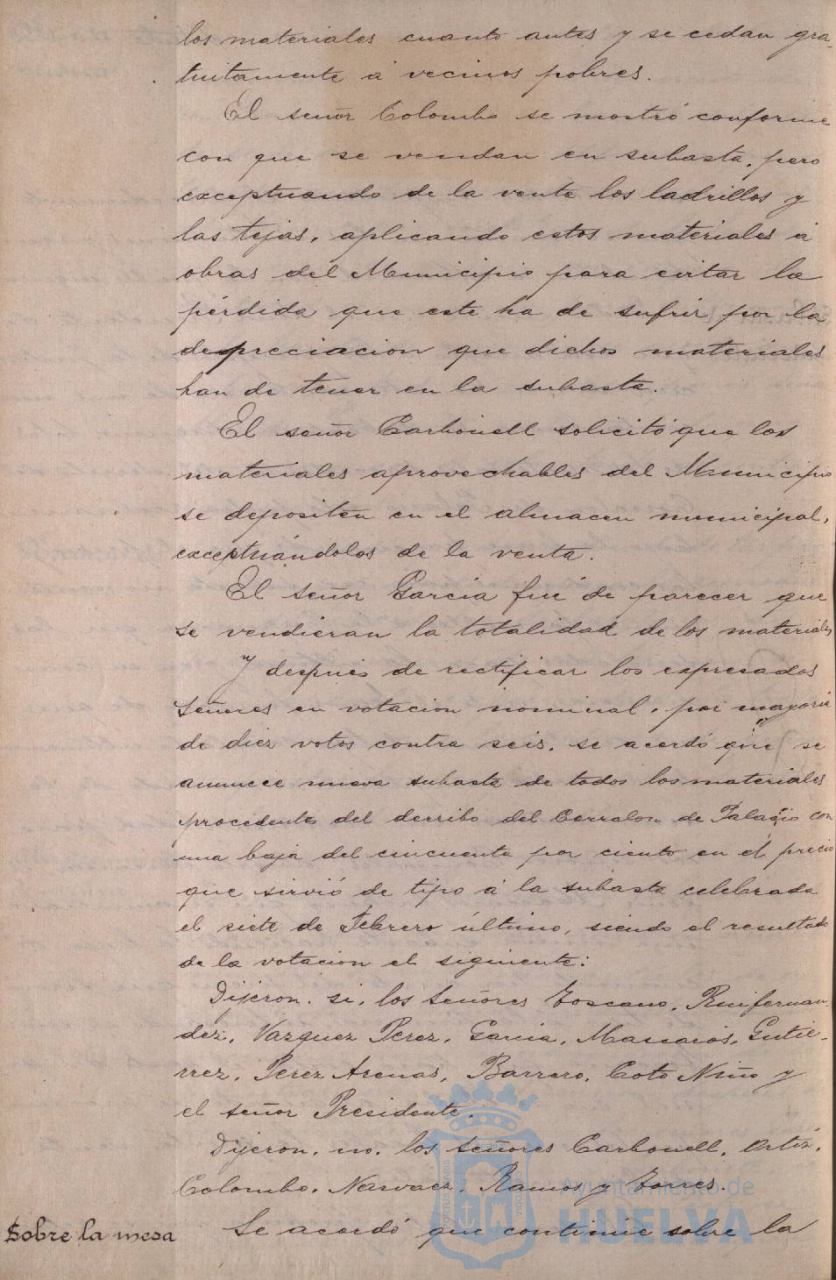 los materiales cuanto antes y se cedan gra-
tuitamente á vecinos pobres.
El señor Colombo se mostró conforme
con que se vendan en subasta, pero
exceptuando de la venta los ladrillos y
las tejas, aplicando estos materiales á
obras del Municipio para evitar la
pérdida que este ha de sufrir por la
depreciacion que dichos materiales
han de tener en la subasta.
El señor Carbonell solicitó que los
materiales aprovechables del Municipio
se depositen en el almacen municipal,
exceptuándolos de la venta.
El señor Garcia fué de parecer que
se vendieran la totalidad de los materiales
y después de rectificar los expresados
señores en votacion nominal, por mayoria
de diez votos contra seis, se acordó que se
anuncie nueva subasta de todos los materiales
procedentes del derribo del Corralon de Palacio con
una baja del cincuenta por ciento en el precio
que sirvió de tipo á la subasta celebrada
el siete de Febrero último, siendo el resultado
de la votacion el siguiente:
Dijeron, si, los señores Toscano, Ruifernan-
dez, Vazquez Perez, Garcia, Mascarós, Gutie-
rrez, Perez Arenas, Barrero, Coto Niño y
el señor Presidente.
Dijeron, no, los señores Carbonell, Ortiz,
Colombo, Narvaez, Ramos y Torres.
Sobre la mesa
Se acordó que continúe sobre la
Ayuntamiento de
HUELVA